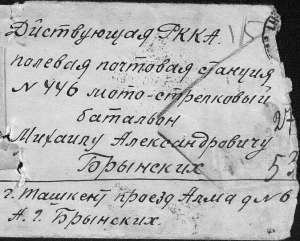 Дйствующая РККА. 115
полевая почтовая станция
N 446 мото-стрелковый
баталъон
Михаилу Александровичу
Брынских 53
г. Ташкент проезд Алма д N 6
А. Г. Брынских.